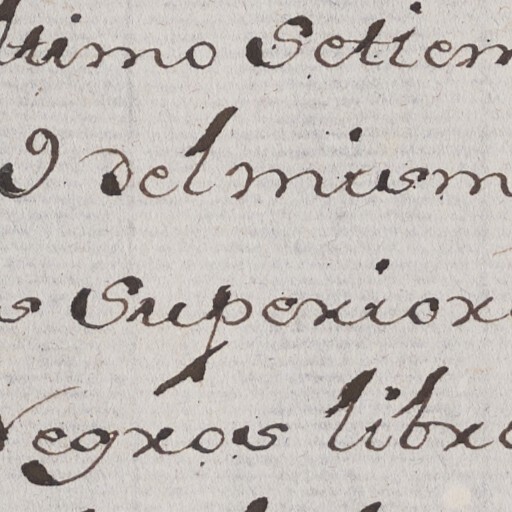 ltimo Setiem
9 del mism
s Superiore
Negros libre